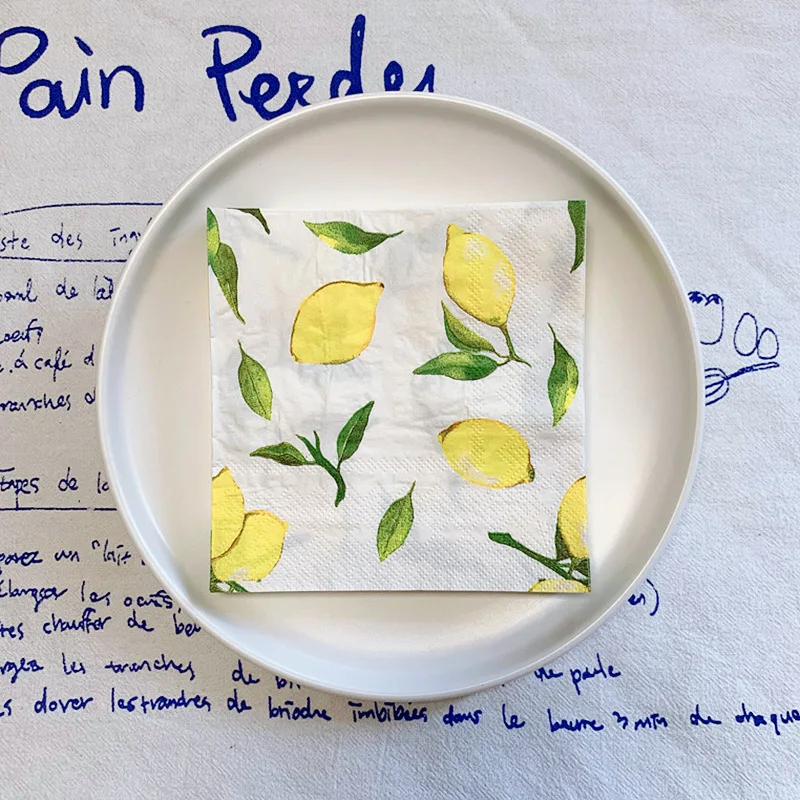 Pain Perdu
ste des ingr
de lait
oeufs
. à café d
tranches d
tapes de la
un "lait
élanger les oeufs,
tes chauffer de beu
en)
les tranches de bri
poele
s dorer les tranches de brioche imbibées dans le beurre 3 min de chaque